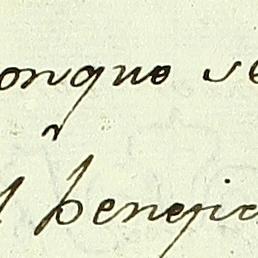 onque se
l benefic